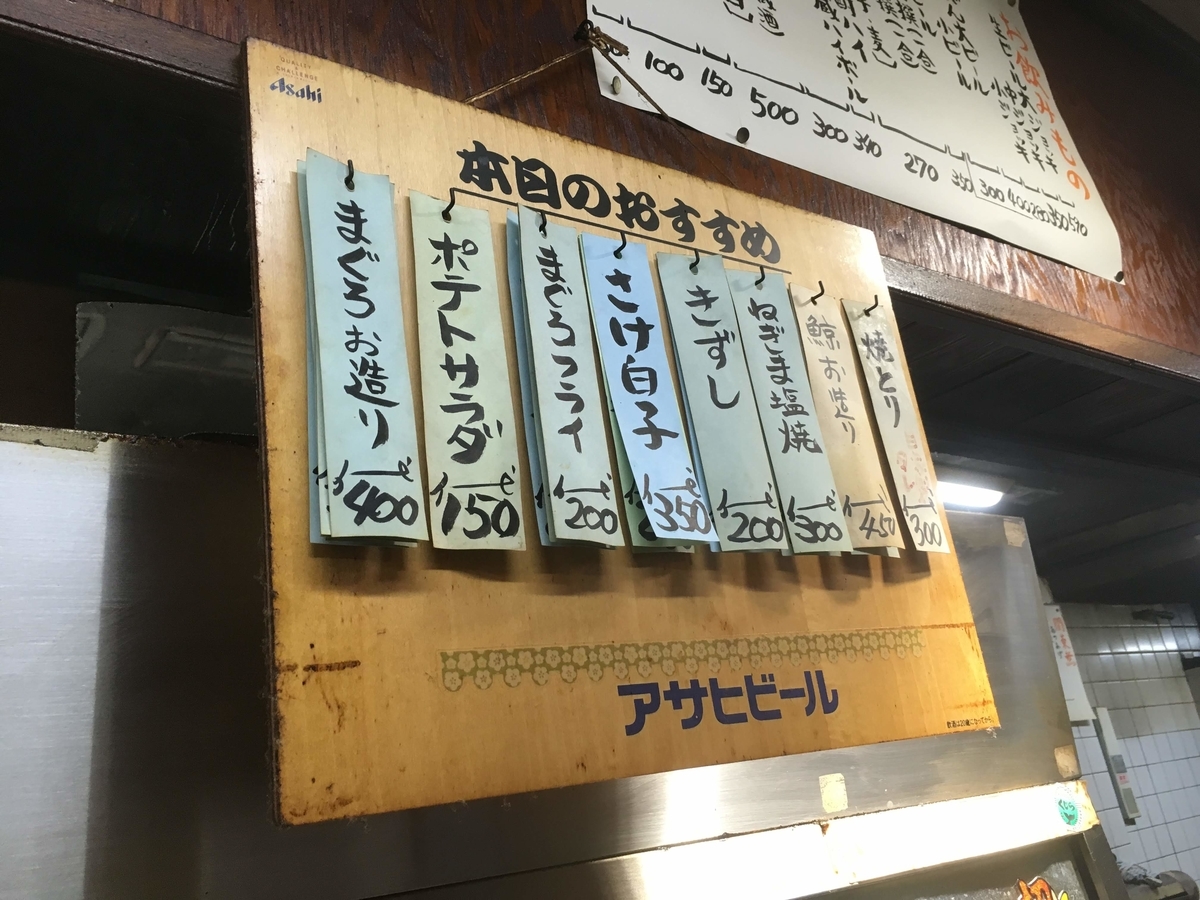 QUALITY
CHALLENGE
Asahi
本日のおすすめ
まぐろお造り
400
ポテトサラダ
150
まぐろフライ
200
さけ白子
350
きずし
200
ねぎま塩焼
300
鯨お造り
450
焼とり
300
アサヒビール
飲酒は20歳になってから。
お飲みもの
100
150
500
300
340
270
350
300
400
280
350
590